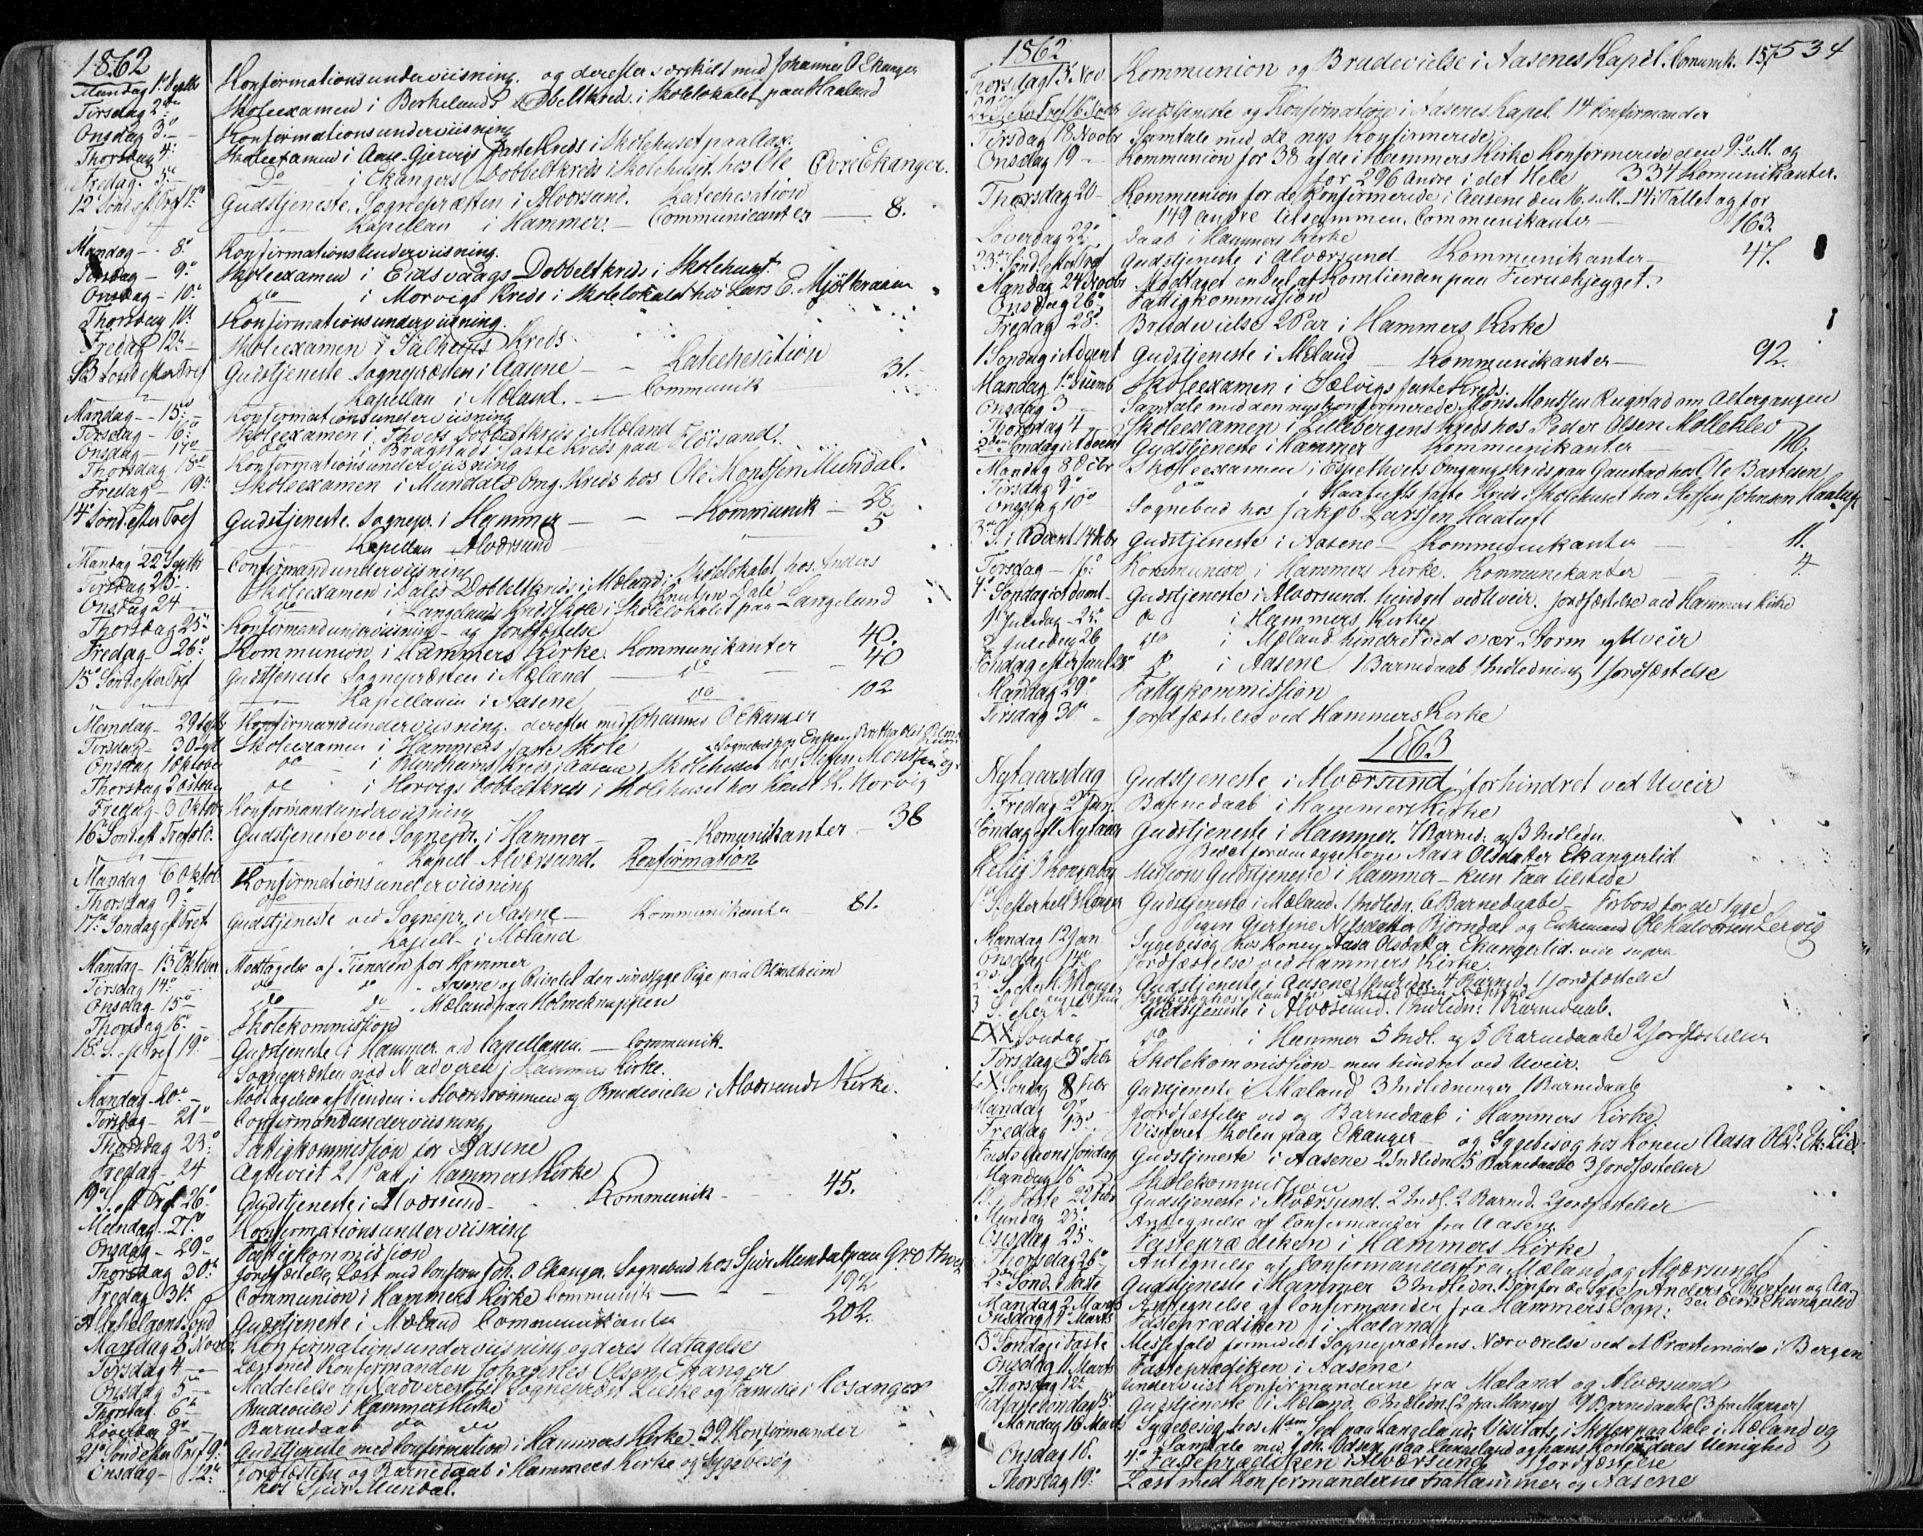 1862
Mandag 1e Septbr Konfirmationsunderviisning. og derefter særskilt med Johannes O. Ekanger
Tirsdag 2den Skoleexamen i Berkelands Dobbeltkreds i Skolelokalet paa Haaland
Onsdag 3o Konfirmationsunderviisning
Thorsdag 4o Skoleexamen i Aase-Gjervigs faste Kreds i Skolehuset paa Aase
Fredag 5o do i Ekangers Dobbeltkreds i Skolehuset hos Ole Øvre Ekanger.
12 Sønd. eft. Tref 7o Gudstjeneste. Sognepræsten i Alværsund. Katechesation
Kapellan i Hammer. Communicanter 8.
Mandag 8o Konfirmationsunderviisning.
Tirsdag 9o Skoleexamen i Eidsvaags Dobbeltkreds i Skolehuset.
Onsdag 10o do i Morvigs Kreds i Skolelokalet hos Lars E. Mjølkeraaen
Thorsdag 11. Konfirmationsunderviisning.
Fredag 12. Skoleexamen i Salhuus Kreds.
13 Sønd efter Tref Gudstjeneste Sognepræsten i Aasene Katechesation
Kapellan i Mæland. Communik 31.
Mandag 15o Konfirmationsunderviisning
Tirsdag 16o Skoleexamen i Dobbeltkreds i Mæland
Onsdag 17o do i Bragstads faste Kreds paa Fløisand.
Thorsdag 18o Konfirmationsunderviisning
Fredag 19. Skoleexamen i Mundals Omg. Kreds hos Ole Monssen Mundal.
14 Sønd efter Tref Gudstjeneste. Sognepr. i Hammer Kommunik 28
Kapellan Alværsund 5
Mandag 22 Septbr Confirmandunderviisning
Tirsdag 23. Skoleexamen i Dales Dobbeltkreds i Mæland i Skolelokalet hos Anders Knutsen Dale
Onsdag 24 do i Langelands Kredsskole i Skolelokalet paa Langeland
Thorsdag 25o Konfirmandunderviisning og Jordfæstelse
Fredag 26o Kommunion i Hammers Kirke. Kommunikanter 40.
15 Sønd. eft Tref Gudstjeneste Sognepræsten i Mæland do 40
Kapellanen i Aasene do 102
Mandag 29 Septbr Konfirmandunderviisning. derefter med Johannes O Ekanger
Tirsdag 30 Septbr Skoleexamen i Hammers faste Skole
Onsdag 1 Oktober do i Rundheims Kreds i Aasene i Skolehuset hos Steffen Montsen
Thorsdag 2 Oktober do i Horvigs Dobbeltkreds i Skolehuset hos Knud L. Morvig
Fredag 3 Oktober Konfirmandunderviisning
16 Sønd eft Tref Gudstjeneste ved Sognepr. i Hammer Komunikanter 38
Kapell. Alværsund. Konfirmation
Mandag 6 Oktob. Konfirmationsunderviisning
Thorsdag 9o do
17. Søndag eft Tref Gudstjeneste ved Sognepr. i Aasene Kommunikanter 81.
Kapell. i Mæland
Mandag 13 Oktober Modtagelse af Tienden for Hammer
Tirsdag 14o do do Aasene og Besøgt den sindssyge Pige paa Blindheim
Onsdag 15o do do Mæland paa Holmeknappen
Thorsdag 16o Skolekommission
18. S. eft Tref 19o Gudstjeneste i Hammer ved Capellanen. Communik.
Sognepræsten med Nadveren i Hammers Kirke.
Mandag 20o Modtagelse af Tienden i Alværstrømmen og Brudevielse i Alværsunds Kirke.
Tirsdag 21o Confirmandunderviisning
Thorsdag 23o Fattigkommission for Aasene
Fredag 24 Ægteviet 2 Par i Hammers Kirke
19. S. eft Tref 26o Gudstjeneste i Alværsund Kommunik 45.
Mandag 27o Konfirmationsunderviisning
Onsdag 29o Fattigkommission
Thorsdag 30. Jordfæstelse, Læst med Conform. Joh. O Ekanger. Sognebud hos Sjur Mundal paa
Fredag 31. Communion i Hammers Kirke Communik 192
Allehelgens Sønd Gudstjeneste i Mæland Communikanter 202.
Mandag 3 Novbr Konfirmationsunderviisning og deres Udtagelse
Tirsdag 4 Læst med Konfirmanden Johannes Olsen Ekanger
Onsdag 5 Meddelelse af Nadveren til Sognepræst og Familie i Hosanger
Thorsdag 6 Brudevielse i Hammers Kirke
Løverdag 8o Barnedaab do do
21. Sønd eft Tref 9o Gudstjeneste med Confirmation i Hammers Kirke. 39 Konfirmander
Onsdag 12. Jordfæstelse og Barnedaab i Hammers Kirke og Sygebesøg
hos Sjur Mundal.
1862 534
Torsdag 13. Nov Kommunion og Brudevielse i Aasenes Kapel. Comunik. 157
22 S. efter Tref 16 Novbr Gudstjeneste og Konfirmation i Aasenes Kapel 14 Confirmander
Tirsdag 18 Novbr Samtale med de nys Konfirmerede
Onsdag 19 Kommunion for 38 af de i Hammers Kirke Konfirmerede den 9. s. M. og
for 296 Andre i det Hele 334 Komunikanter.
Thorsdag 20 Kommunion for de Konfirmerede i Aasene den 16. s. M. 14 i Tallet og for
149 andre tilsammen. Communikanter 163.
Løverdag 22 Daab i Hammers Kirke
23. Sønd efter Tref Gudstjeneste i Alværsund Kommunikanter 47.
Mandag 24 Novbr Modtaget en Del af Korntienden paa Fieruskjegget.
Onsdag 26o Fattigkommission
Fredag 28. Brudevielse 2 Par i Hammers Kirke
1 Søndag i Advent Gudstjeneste i Mæland Kommunikanter 92.
Mandag 1. Decemb Skoleexamen i Sælvigs faste Kreds.
Onsdag 3 Samtale med den nyskonfirmerede Mons Monssen Rugstad om Altergangen
Thorsdag 4 Skoleexamen i Lillebergens Kreds hos Peder Olsen Mollekleiv
2den Søndag i Advent Gudstjeneste i Hammer Kommunikanter 116.
Mandag 8 Decbr Skoleexamen i Espethvets Omgangskreds paa Gaustad hos Ole Bastesen
Tirsdag 9o do i Haatufts faste Kreds i Skolehuset hos Steffen Johnsen Haatuft
Onsdag 10o Sognebud hos Jakob Larssen Haatuft
3. S. i Advent 14 Dbr Gudstjeneste i Aasene Kommunikanter 11.
Tirsdag 16o Kommunion i Hammers Kirke. Kommunikanter 4.
4. Søndag i Advent Gudstjeneste i Alværsund. hindret ved Uveir. Jordfæstelse ved Hammers Kirke
1. Juledag 25 do i Hammers Kirke
2 Juledag 26 do i Mæland hindret ved svær Storm og Uveir
Søndag efter Juul 28 do i Aasene 1 Barnedaab 1 Indledning 1 Jordfæstelse
Mandag 29o Fattigkommission
Tirsdag 30o Jordfæstelse ved Hammers Kirke
1863
Nytaarsdag Gudstjeneste i Alværsund, forhindret ved Uveir
Fredag 2 Jan. Barnedaab i Hammers Kirke
Søndag eft Nytaar Gudstjeneste i Hammer. 7 Barned. og 3 Indledn.
Bedet for den syge Kone Aasa Olsdatter Ekangerlid
Hellig 3 Kongers Missions Gudstjeneste i Hammer kun Faa tilstede
1. S. efter hell 3 Konger Gudstjeneste i Mæland. 1 Indledn. 6 Barnedaabe Forbøn for de syge
Pigen Gjertine Nilsdatter Bjørndal og Enkemand Ole Halvorsen Lervig
Mandag 12 Jan Sygebesøg hos Konen Aasa Olsdatter Ekangerlid. vide supra
Onsdag 14 Jordfæstelse ved Hammers Kirke.
2. S. eft. h. 3 Konger Gudstjeneste i Aasene, 1 Indledn. 4 Barned. 1 Jordfæstelse
3 S. efter Gudstjeneste i Alværsund. 1 Indledn. 1 Barnedaab.
LXX Søndag do i Hammer 5 Indl. og 5 Barnedaabe 2 Jordfæstelser
Tirsdag 3 Febr Skolekommission men hindret ved Uveir.
LX Søndag 8 Febr Gudstjeneste i Mæland 3 Indledninger 1 Barnedaab
Mandag 9o Jordfæstelse ved og Barnedaab i Hammers Kirke
Fredag 13. Visiteret Skolen paa Ekanger og Sygebesøg hos Konen Aasa Olsd. Ek. Lid.
Fastelavns Søndag Gudstjeneste i Aasene 2 Indledn. 5 Barnedaabe 3 Jordfæstelser
Mandag 16 Skolekommission
1. i Faste 22 Febr Gudstjeneste i Alværsund. 2 Indl. 2 Barned. 2 Jordfæstelser
Mandag 23o Antegnelse af Confirmander fra Aasene
Onsdag 25. Fasteprædiken i Hammers Kirke
Thorsdag 26o Antegnelse af Confirmander fra Mæland og Alværsund
2den Sønd. i Faste Gudstjeneste i Hammer 3 Indledn. Bøn for de Syge Anders og Aasa Olsd. Ekangerlid
Mandag 2 Marts Antegnelse af Confirmander fra Hammers Sogn.
Onsdag 4 Marts Fasteprædiken i Mæland
3. Søndag i Faste Messefald formedelst Sognepræstens Nærværelse ved et Præstemøde i Bergen
Onsdag 11 Marts Fasteprædiken i Aasene
Thorsdag 12. Underviist Konfirmanderne fra Mæland og Alværsund
Midfastesøndag 15. Gudstjeneste i Mæland. 6 Indledn. (2 fra Manger) 9 Barnedaabe (3 fra Manger)
Mandag 16 Marts Sygebesøg hos paa Langeland; Visitats i Skolen paa Dale i Mæland og
Samtale med Joh. paa Langeland og hans Kone deres Uenighed
Onsdag 18. 4. Fasteprædiken i Alværsund 1 Jordfæstelse
Thorsdag 19. Læst med Konfirmanderne fra Hammer og Aasene